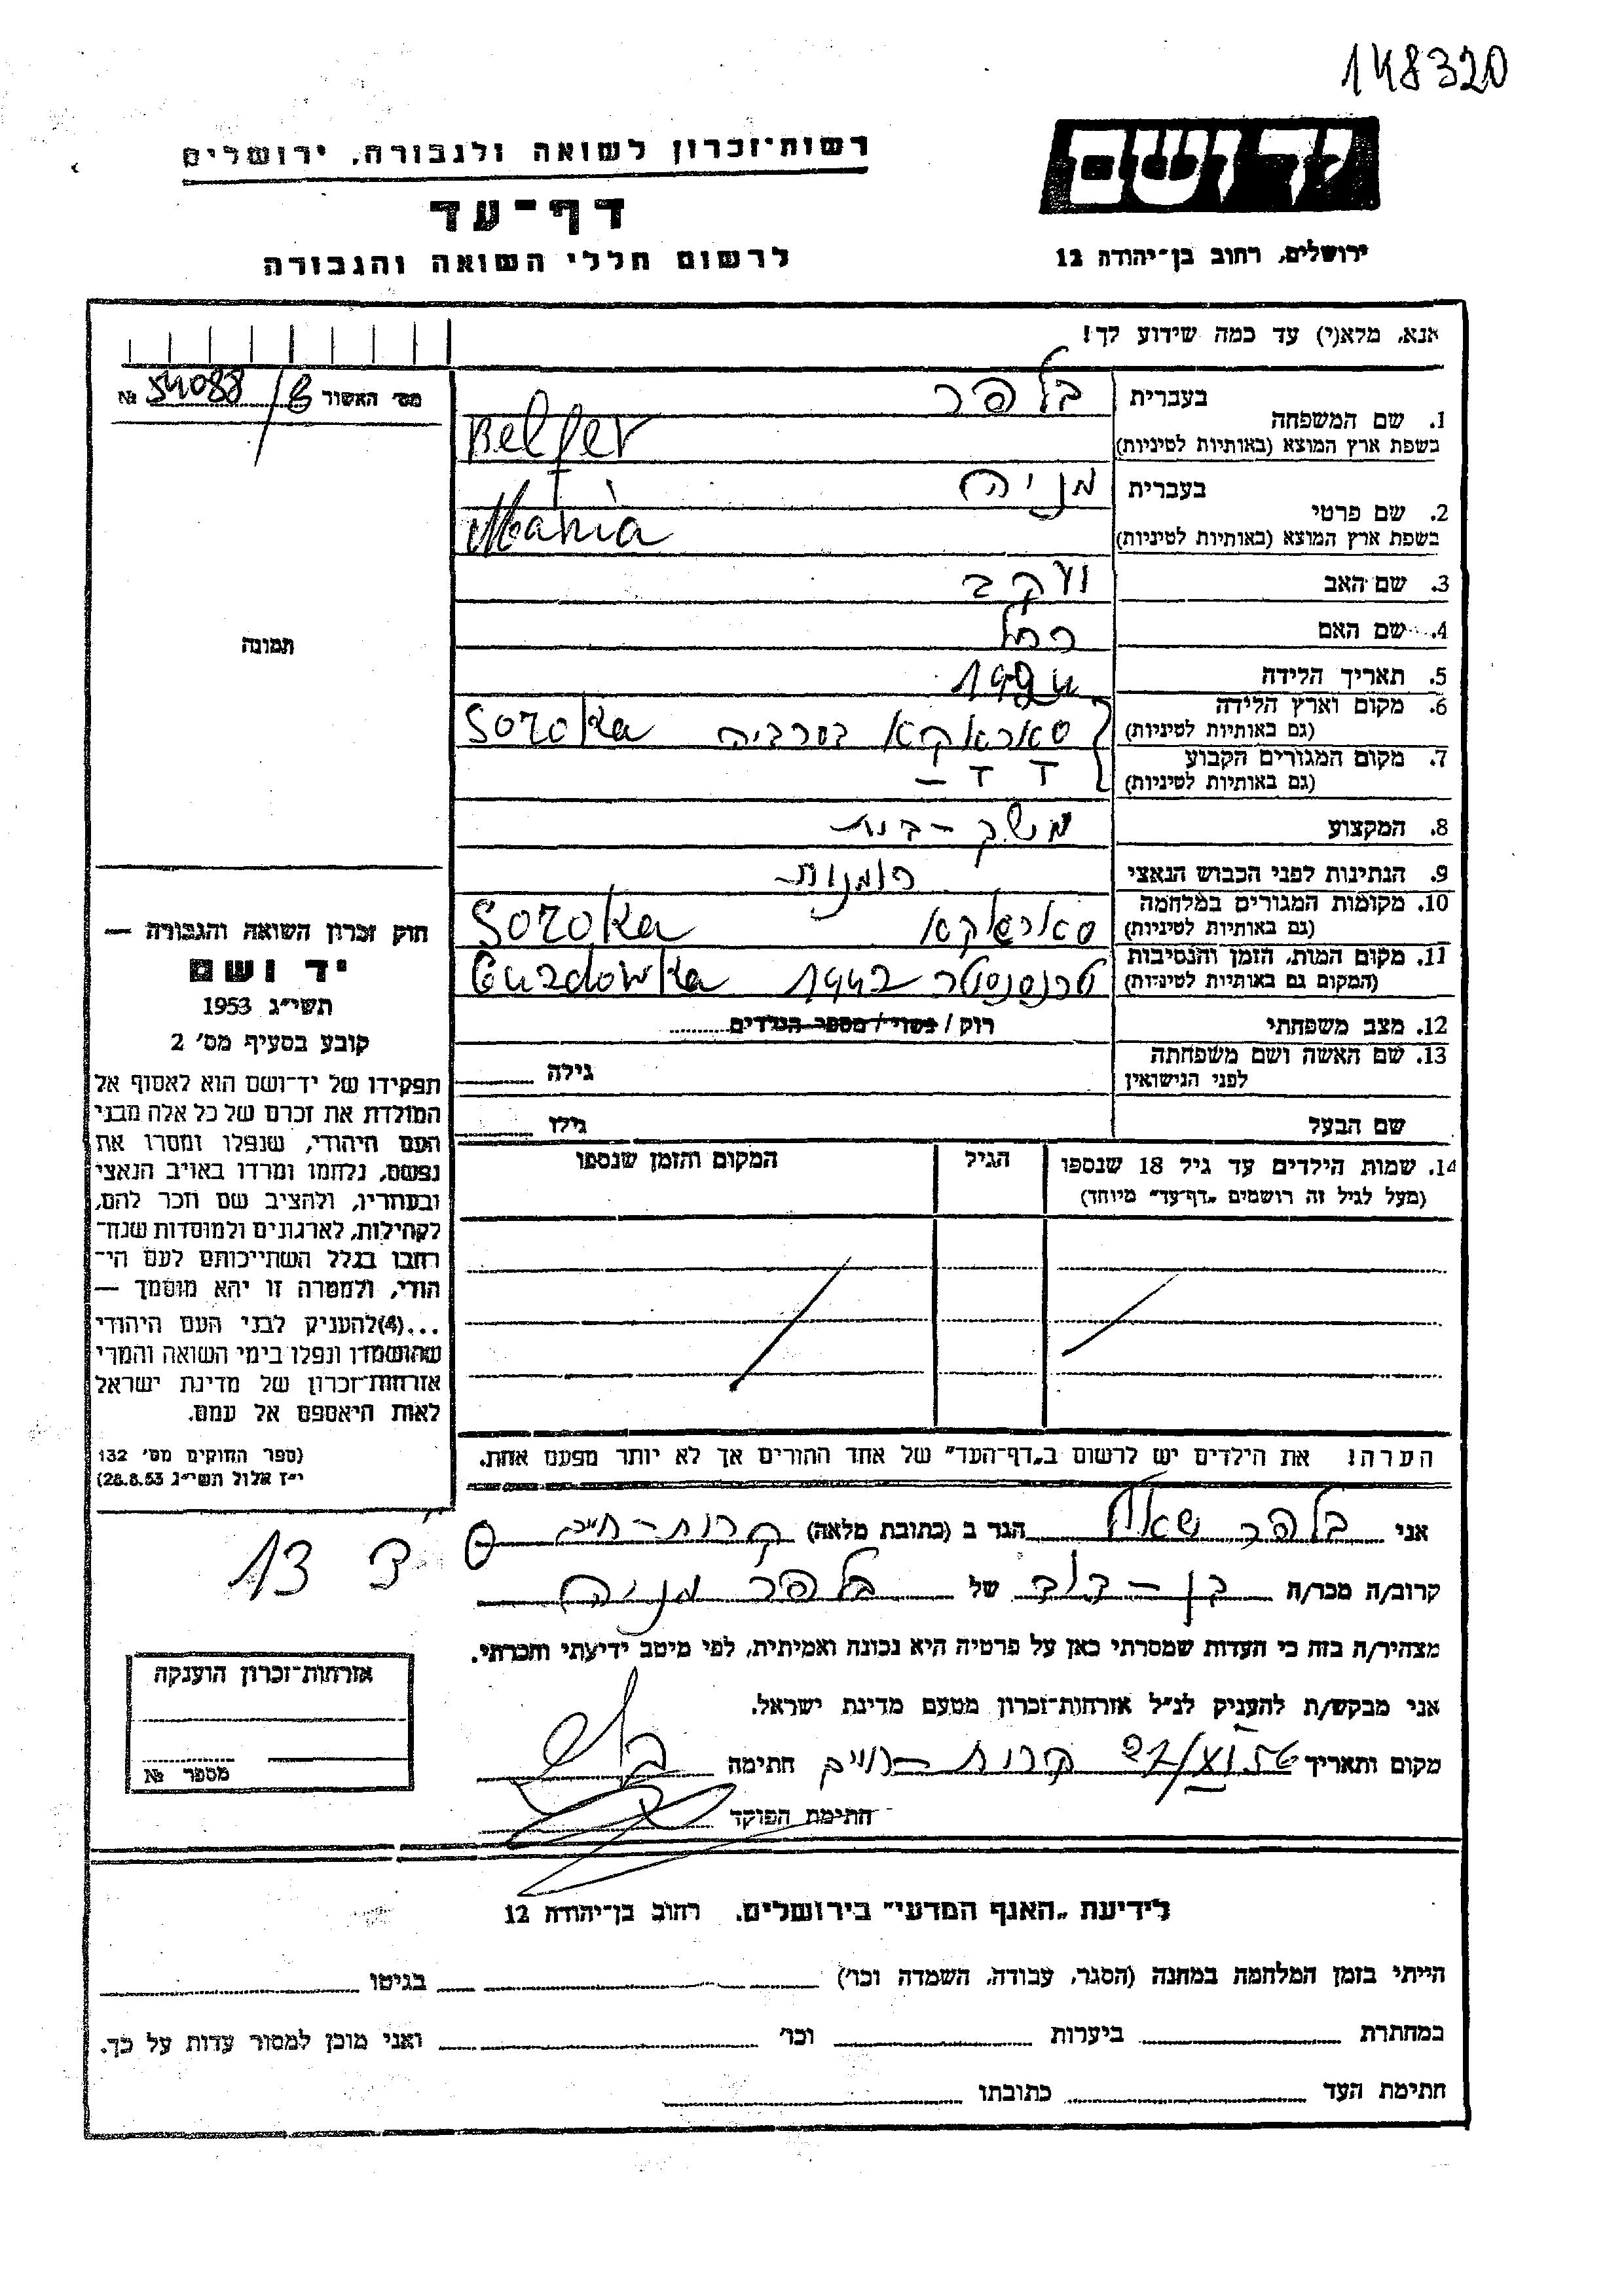 148320
יד ושם
רשות־זכרון לשואה ולגבורה, ירושלים
דף־עד
לרשום חללי השואה והגבורה
ירושלים, רחוב בן־יהודה 12
אנא, מלא(י) עד כמה שידוע לך!
מס' האשור № 54088/6
1. שם המשפחה בעברית בלפר
בשפת ארץ המוצא (באותיות לטיניות) Belfer
2. שם פרטי בעברית מניה
בשפת ארץ המוצא (באותיות לטיניות) Mania
3. שם האב יעקב
4. שם האם רחל
5. תאריך הלידה
6. מקום וארץ הלידה (גם באותיות לטיניות) סאראקא בסרביה Soroka
7. מקום המגורים הקבוע (גם באותיות לטיניות)
8. המקצוע משק־בית
9. הנתינות לפני הכבוש הנאצי רומנית
10. מקומות המגורים במלחמה (גם באותיות לטיניות) סאראקא Soroka
11. מקום המות, הזמן והנסיבות (המקום גם באותיות לטיניות) טרנסניסטר 1942 Guzdowka
12. מצב משפחתי רוק / נשוי / מספר הילדים
13. שם האשה ושם משפחתה לפני הנישואין גילה
שם הבעל גילו
14. שמות הילדים עד גיל 18 שנספו הגיל המקום והזמן שנספו
(מעל לגיל זה רושמים "דף־עד" מיוחד)
הערה! את הילדים יש לרשום ב"דף־העד" של אחד ההורים אך לא יותר מפעם אחת.
תמונה
חוק זכרון השואה והגבורה —
יד ושם
תשי"ג 1953
קובע בסעיף מס' 2
תפקידו של יד־ושם הוא לאסוף אל
המולדת את זכרם של כל אלה מבני
העם היהודי, שנפלו ומסרו את
נפשם, נלחמו ומרדו באויב הנאצי
ובעוזריו, ולהציב שם וזכר להם,
לקהילות, לארגונים ולמוסדות שנח־
רבו בגלל השתייכותם לעם הי־
הודי, ולמטרה זו יהא מוסמך —
...(4)להעניק לבני העם היהודי
שהושמדו ונפלו בימי השואה והמרי
אזרחות־זכרון של מדינת ישראל
לאות היאספם אל עמם.
(ספר החוקים מס' 132
י"ז אלול תשי"ג 28.8.53)
אני בלפר שאול הגר ב (כתובת מלאה) קרית־חיים
קרוב/ה מכר/ה בן־דוד של בלפר מניה
מצהיר/ה בזה כי העדות שמסרתי כאן על פרטיה היא נכונה ואמיתית, לפי מיטב ידיעתי והכרתי.
אני מבקש/ת להעניק לנ"ל אזרחות־זכרון מטעם מדינת ישראל.
מקום ותאריך קרית־חיים חתימה
חתימת הפוקד
13
אזרחות־זכרון הוענקה
מספר №
לידיעת "האגף המדעי" בירושלים, רחוב בן־יהודה 12
הייתי בזמן המלחמה במחנה (הסגר, עבודה, השמדה וכו') בגיטו
במחתרת ביערות וכו' ואני מוכן למסור עדות על כך.
חתימת העד כתובתו